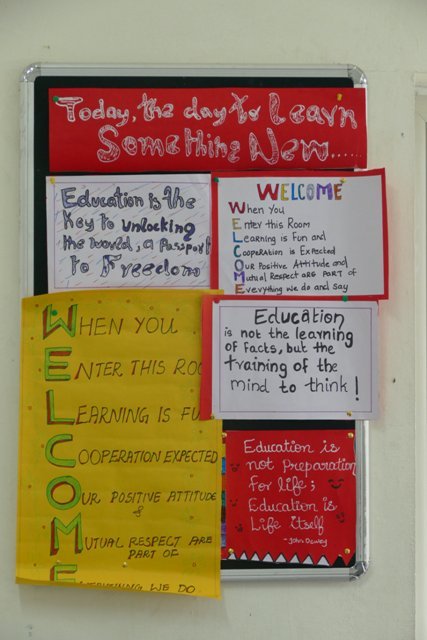 Today, the day to Learn
Something New......
Education is the
Key to unlocking
the world, a Passport
to Freedom
WELCOME
When You
Enter this Room
Learning is Fun and
Cooperation is Expected
Our Positive Attitude and
Mutual Respect are part of
Everything we do and say
Education
is not the learning
of facts, but the
training of the
mind to think!
WHEN YOU
ENTER THIS ROO
LEARNING IS FU
COOPERATION EXPECTED
OUR POSITIVE ATTITUDE
&
MUTUAL RESPECT ARE
PART OF
WE DO
Education is
not preparation
for life;
Education is
Life itself
-John Dewey